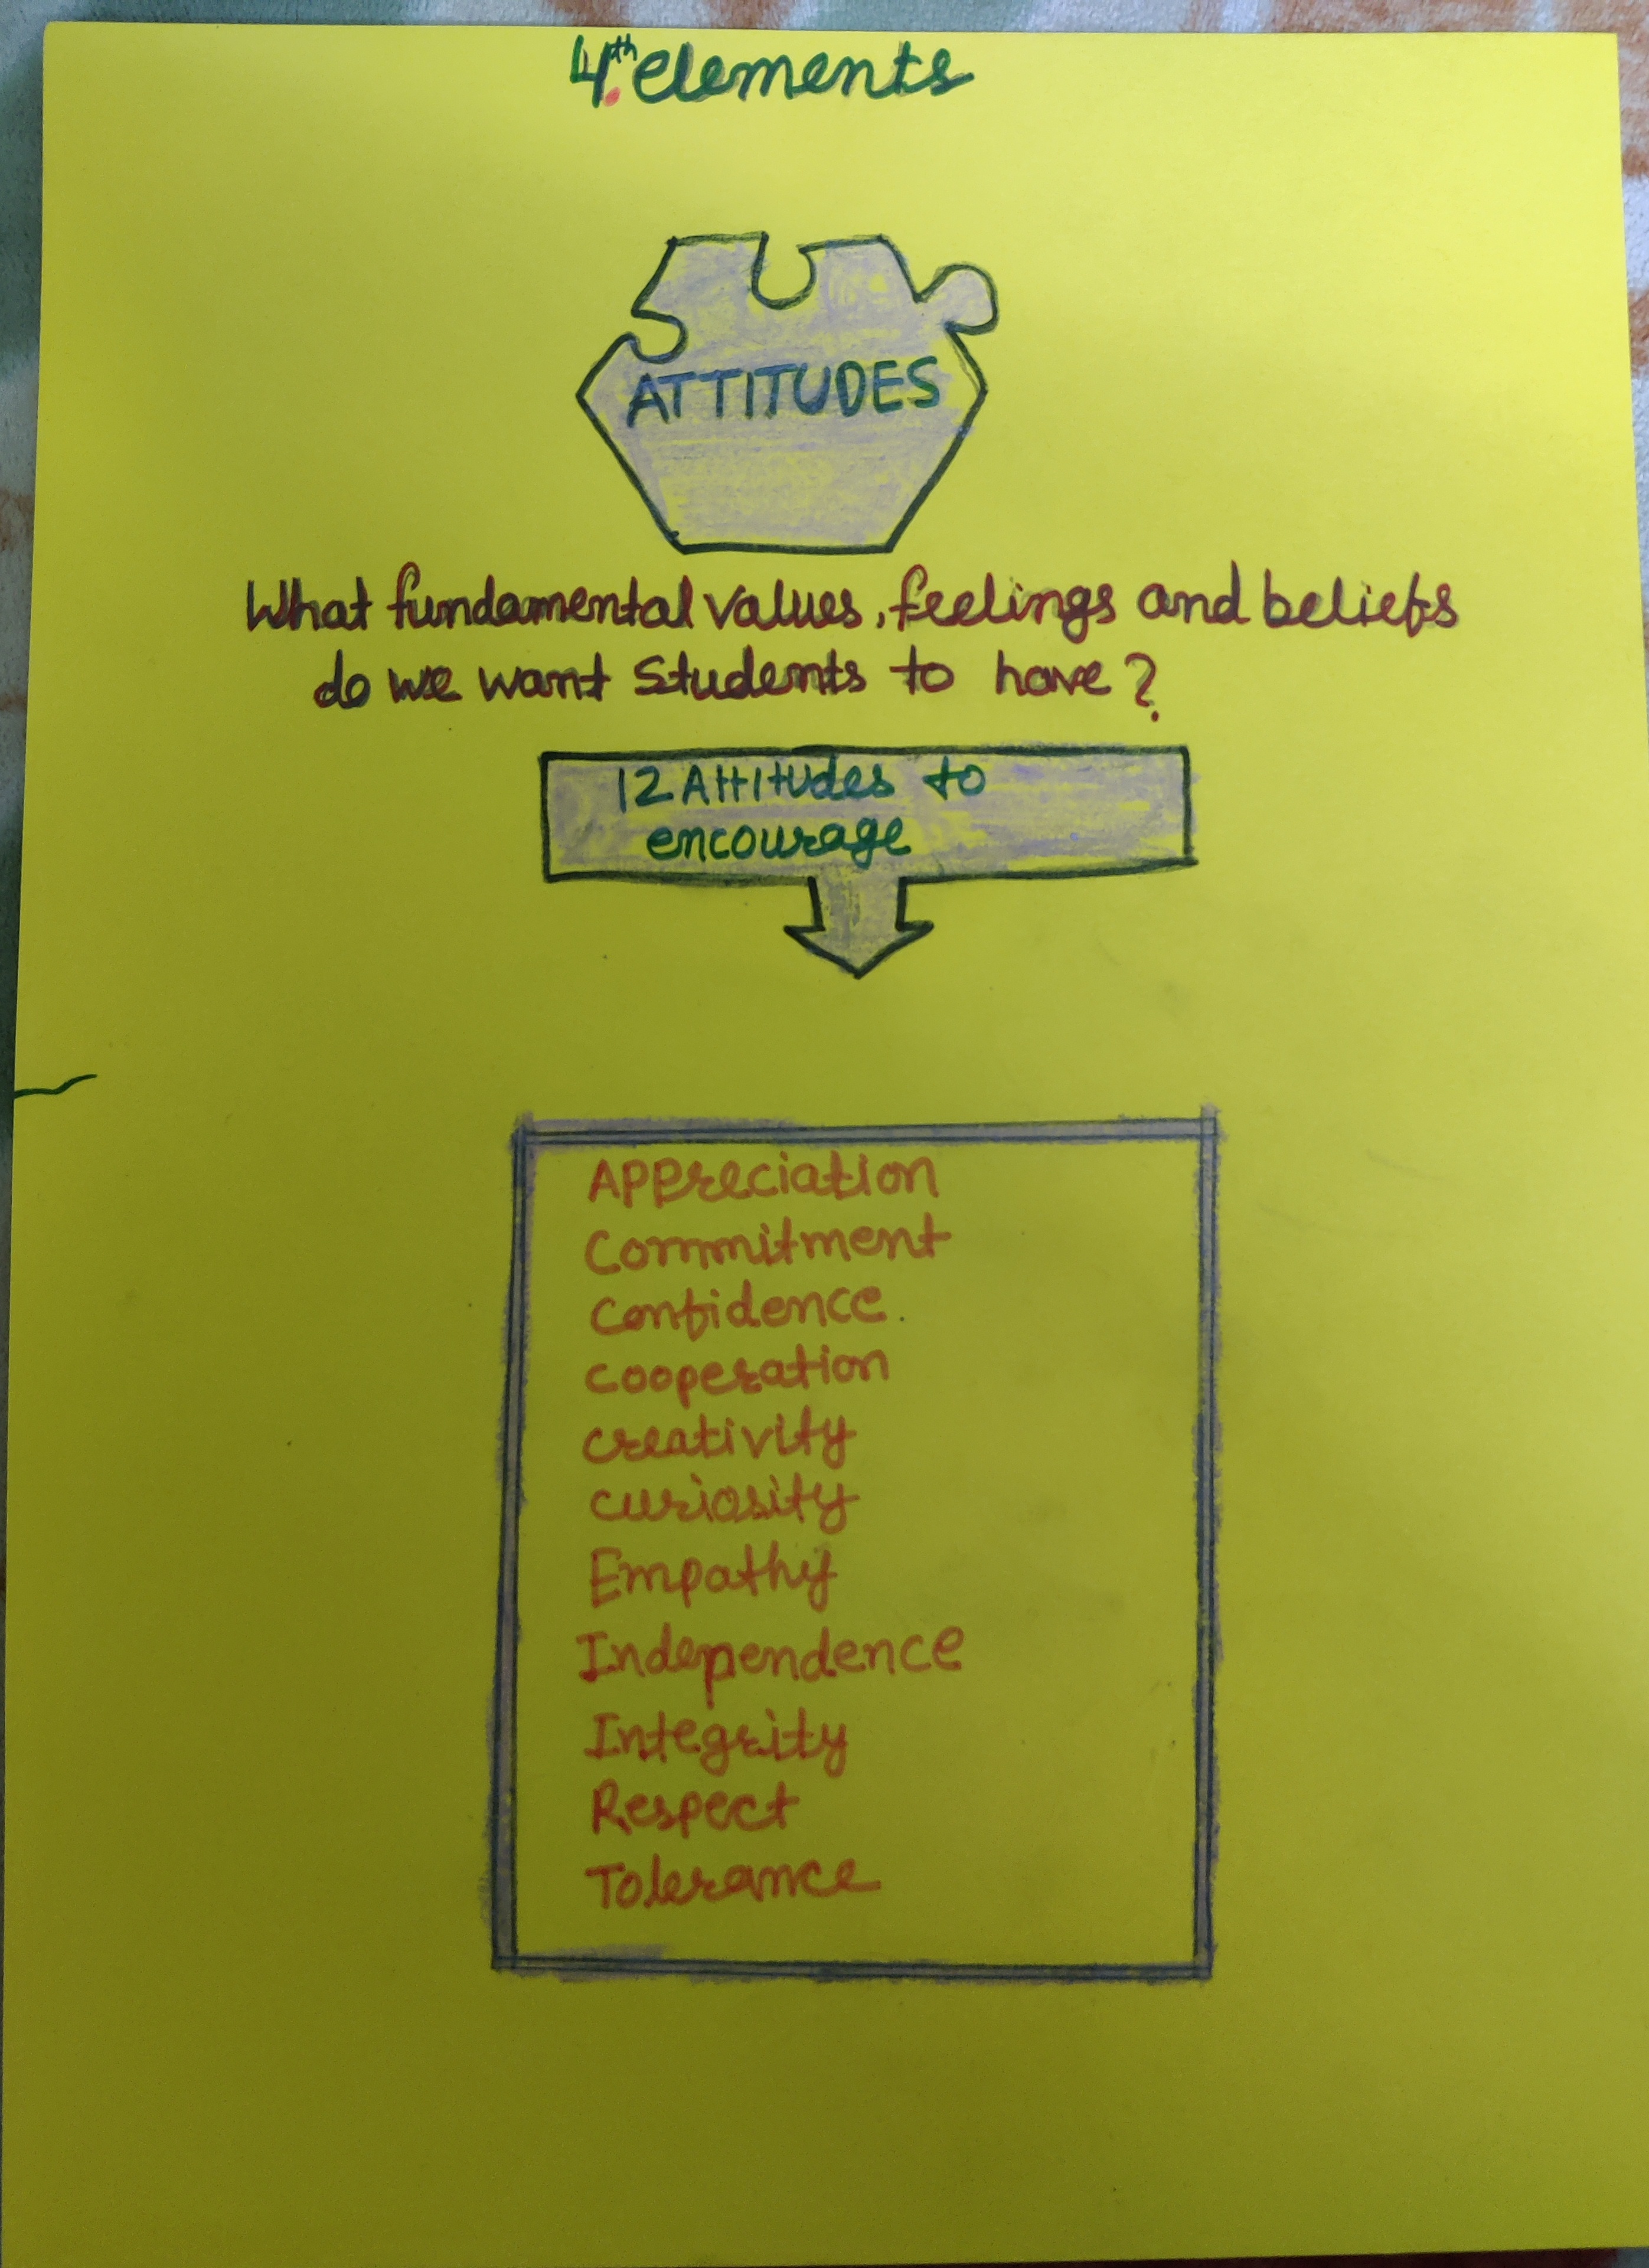 4th elements
ATTITUDES
What fundamental values, feelings and beliefs
do we want students to have?
12 Attitudes to
encourage
Appreciation
Commitment
Confidence.
cooperation
creativity
curiosity
Empathy
Independence
Integrity
Respect
Tolerance